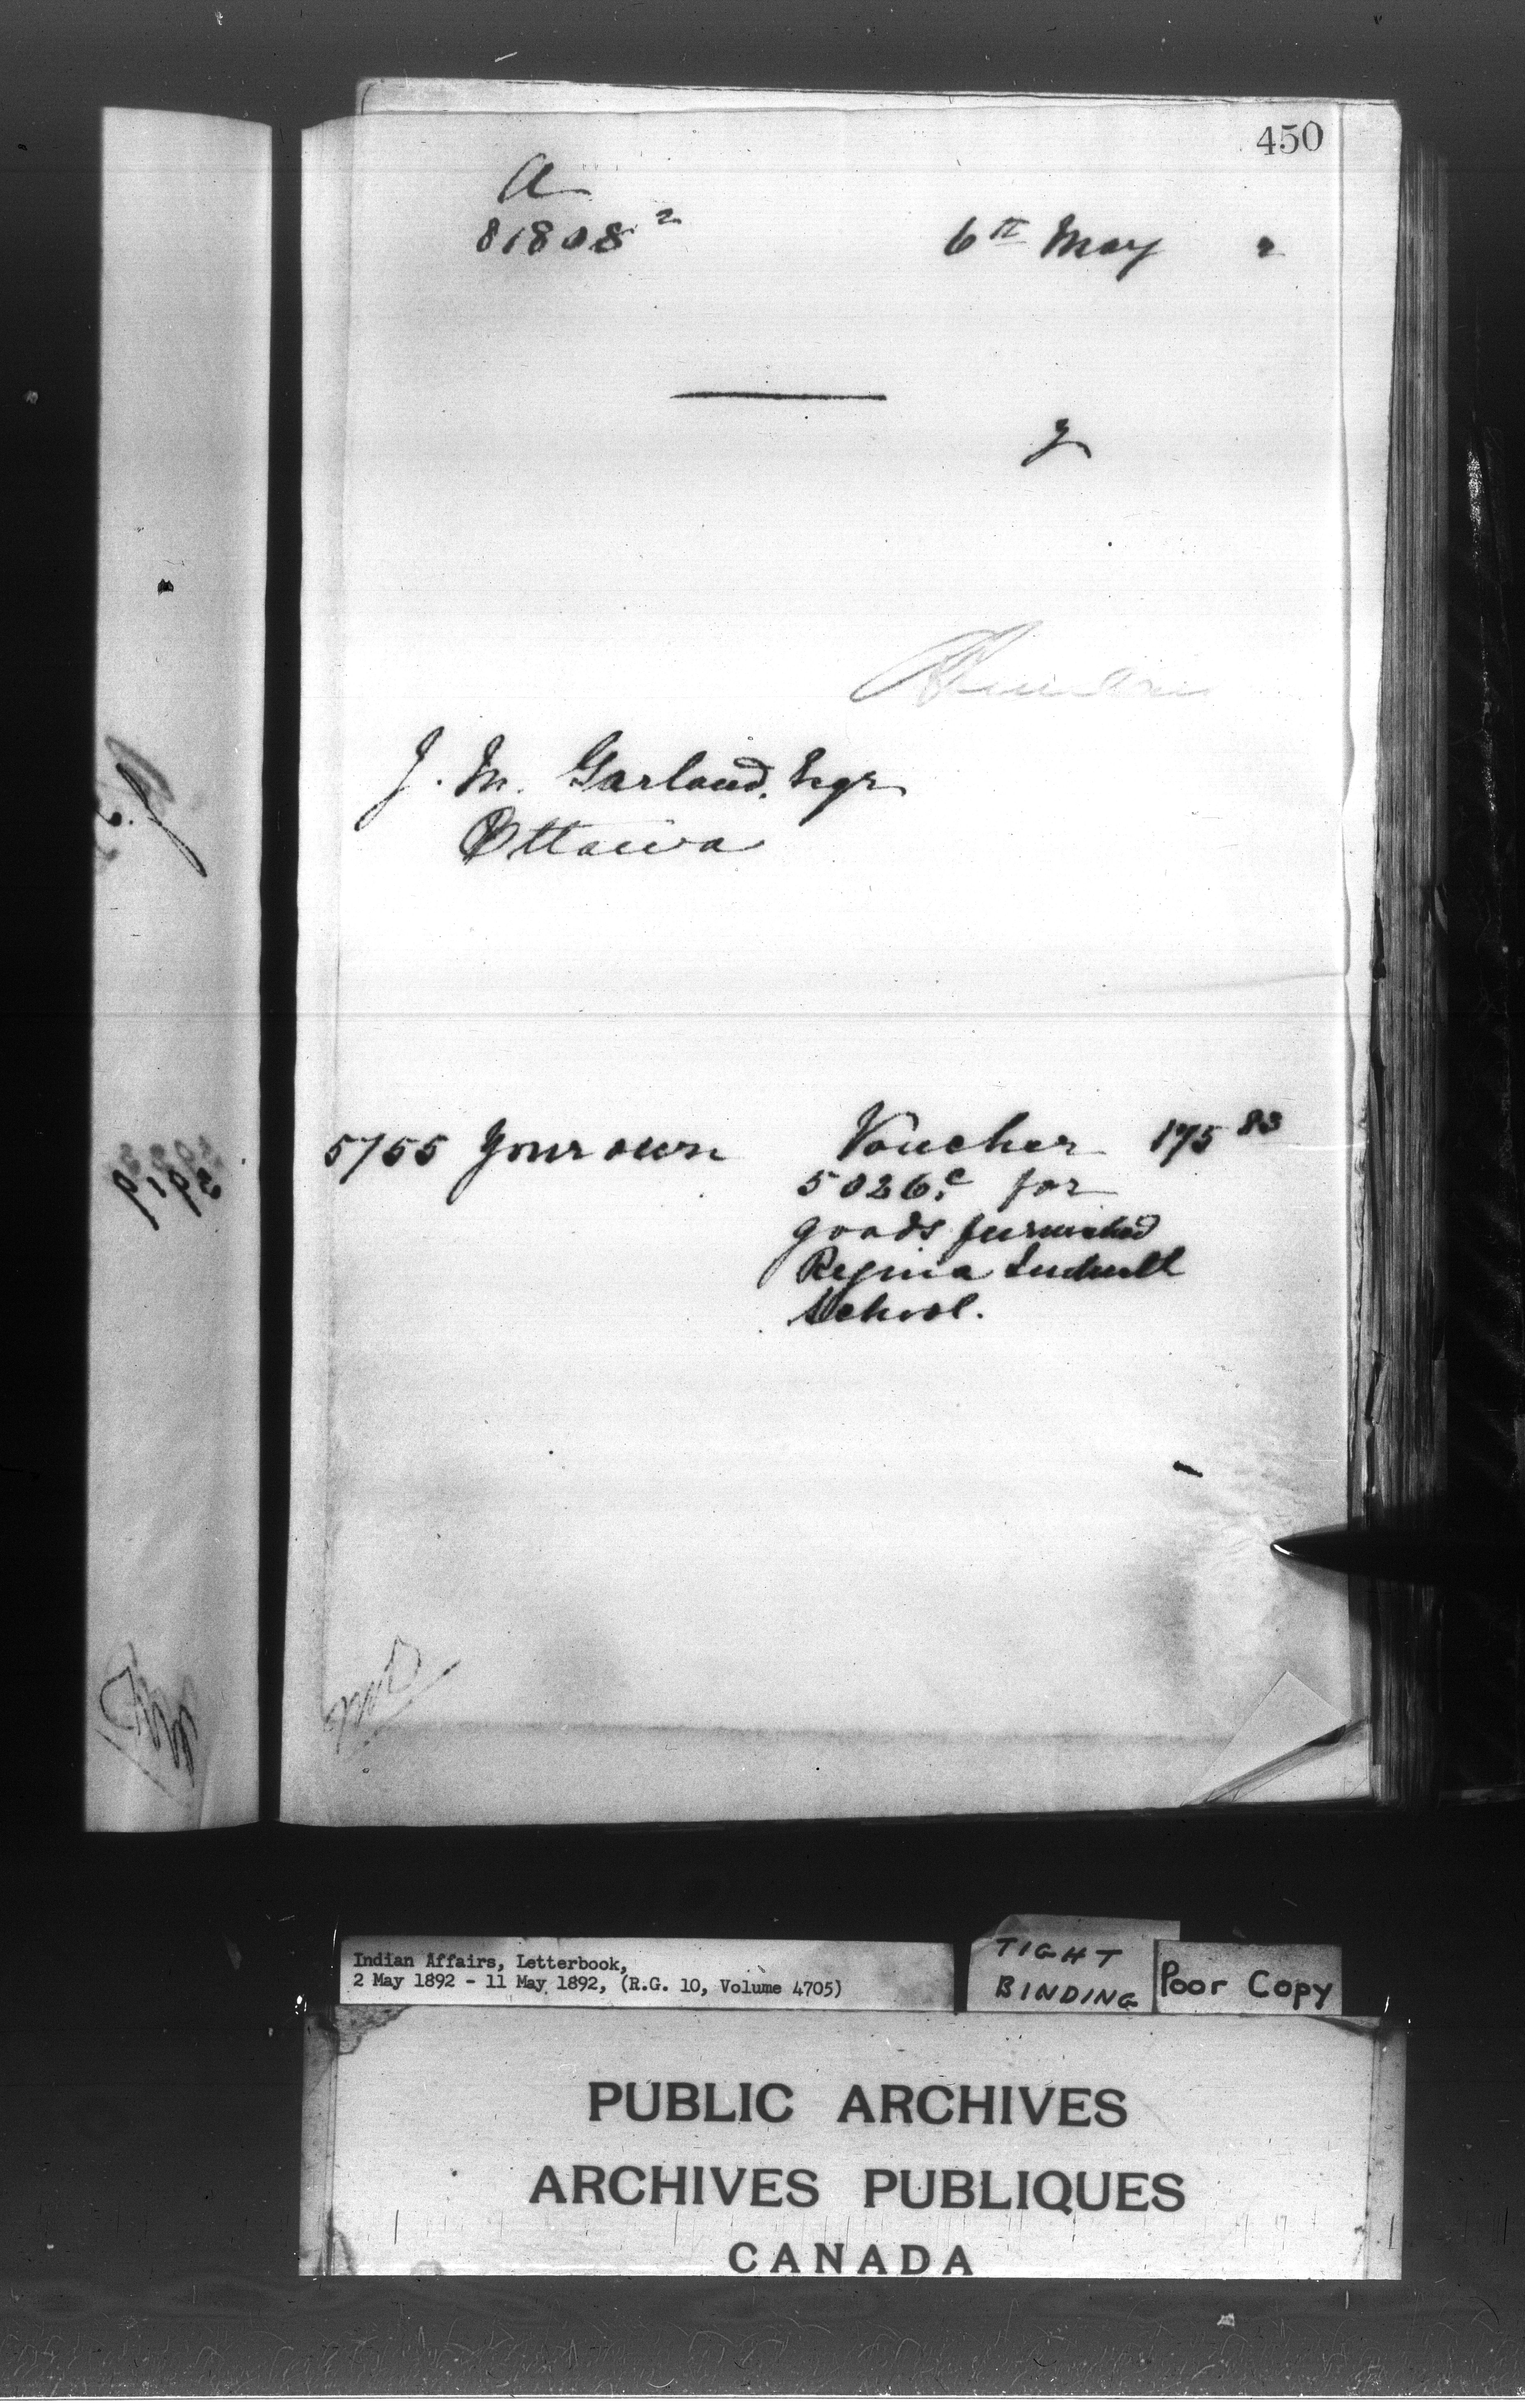 450
A
81808 2
6th May 2
J. M. Garland, Esqr
Ottawa
5755 Your own Voucher 175 83
5026c for
goods furnished
Regina Industl
School.
Indian Affairs, Letterbook,
2 May 1892 - 11 May 1892, (R.G. 10, Volume 4705)
TIGHT
BINDING
Poor Copy
PUBLIC ARCHIVES
ARCHIVES PUBLIQUES
CANADA